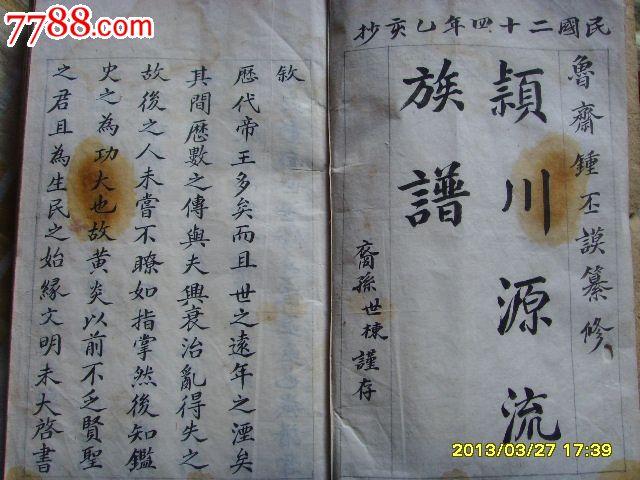 7788.com
民國二十四年乙亥抄
魯齋鍾丕謨纂修
潁川源流
族譜
裔孫世棟謹存
敘
歷代帝王多矣而且世之遠年之湮矣
其間歷數之傳與夫興衰治亂得失之
故後之人未嘗不瞭如指掌然後知鑑
史之為功大也故黃炎以前不乏賢聖
之君且為生民之始緣文明未大啓書
2013/03/27 17:39